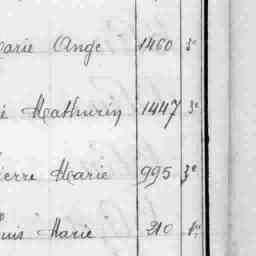 arie Ange 1460 3e
é Mathurin 1447 3e
ierre Marie 995 3e
ouis Marie 210